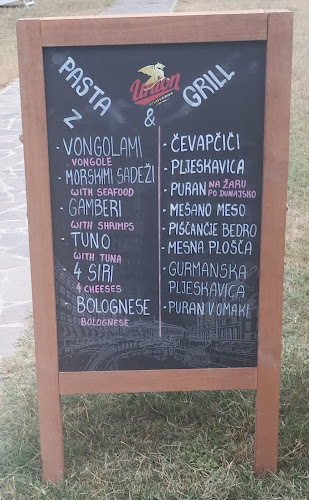 Union
PASTA
Z
&
GRILL
- VONGOLAMI
VONGOLE
- MORSKIMI SADEŽI
WITH SEAFOOD
- GAMBERI
WITH SHRIMPS
- TUNO
WITH TUNA
- 4 SIRI
4 CHEESES
- BOLOGNESE
BOLOGNESE
- ČEVAPČIČI
- PLJESKAVICA
- PURAN NA ŽARU
PO DUNAJSKO
- MEŠANO MESO
- PIŠČANČJE BEDRO
- MESNA PLOŠČA
- GURMANSKA
PLJESKAVICA
- PURAN V OMAKI